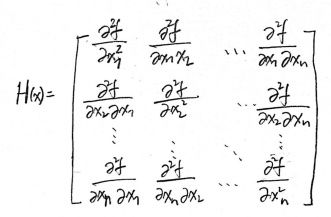 H(x) = [ ∂²f/∂x₁² ∂²f/∂x₁x₂ ⋯ ∂²f/∂x₁∂xₙ
∂²f/∂x₂∂x₁ ∂²f/∂x₂² ⋯ ∂²f/∂x₂∂xₙ
⋮ ⋮ ⋱ ⋮
∂²f/∂xₙ∂x₁ ∂²f/∂xₙ∂x₂ ⋯ ∂²f/∂xₙ² ]